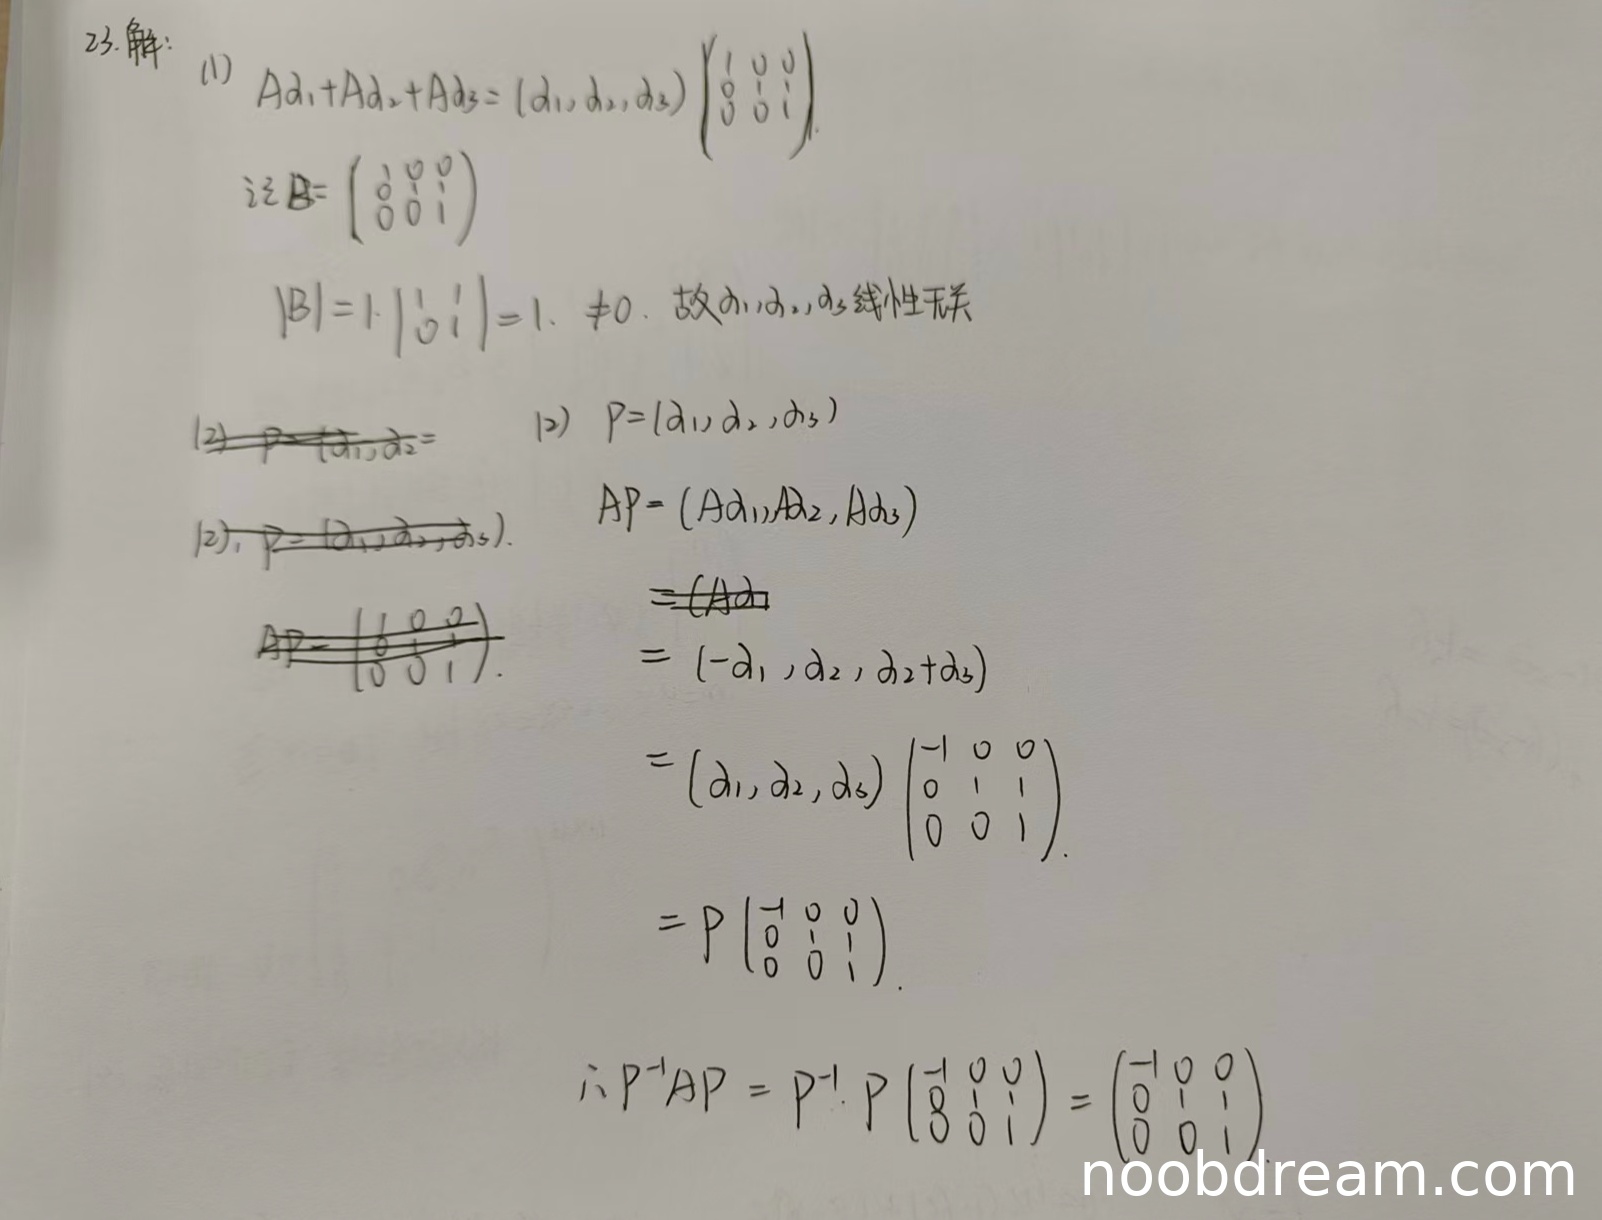 23.解:
(1) Aα₁+Aα₂+Aα₃=(α₁,α₂,α₃)(1 0 0
0 1 1
0 0 1).
记B=(1 0 0
0 1 1
0 0 1)
|B|=1·|1 1
0 1|=1. ≠0. 故α₁,α₂,α₃线性无关
(2) P=(α₁,α₂=
(2). P=(α₁,α₂,α₃).
AP=(1 0 0
0 1 1
0 0 1).
(2) P=(α₁,α₂,α₃)
AP=(Aα₁,Aα₂,Aα₃)
=(Aα₁
=(-α₁,α₂,α₂+α₃)
=(α₁,α₂,α₃)(-1 0 0
0 1 1
0 0 1).
=P(-1 0 0
0 1 1
0 0 1).
∴P⁻¹AP=P⁻¹·P(-1 0 0
0 1 1
0 0 1)=(-1 0 0
0 1 1
0 0 1).
noobdream.com